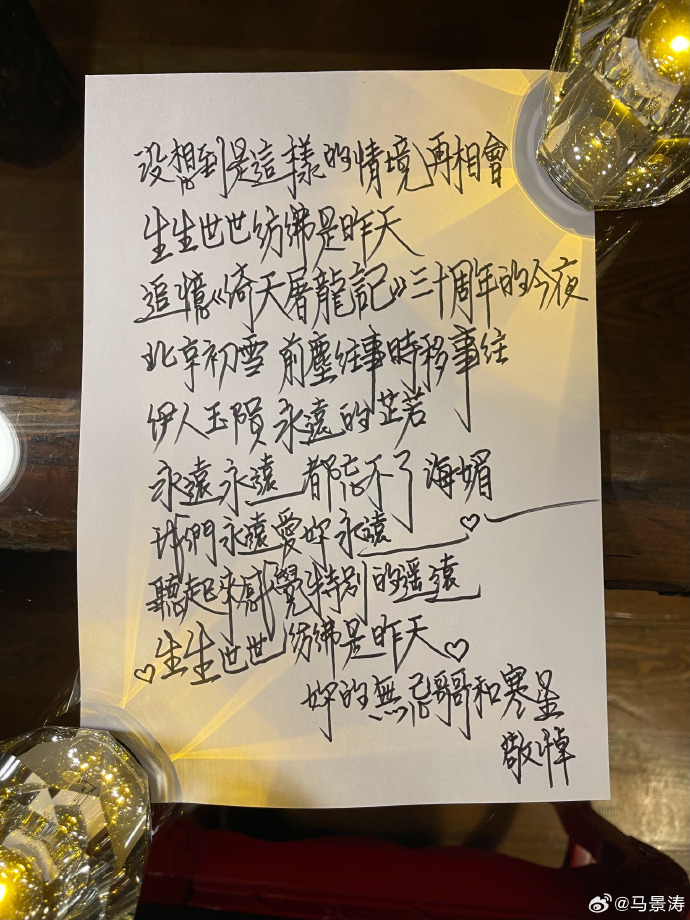 没想到是這樣的情境再相會
生生世世彷彿是昨天
追憶《倚天屠龍記》三十周年的今夜
北京初雪 前塵往事時移事往
伊人玉隕 永遠的芷若
永遠永遠 都忘不了海媚
我們永遠愛妳永遠
聽起來感覺特別的遥遠
生生世世彷彿是昨天
妳的無忌哥哥和寒星
敬悼
@马景涛